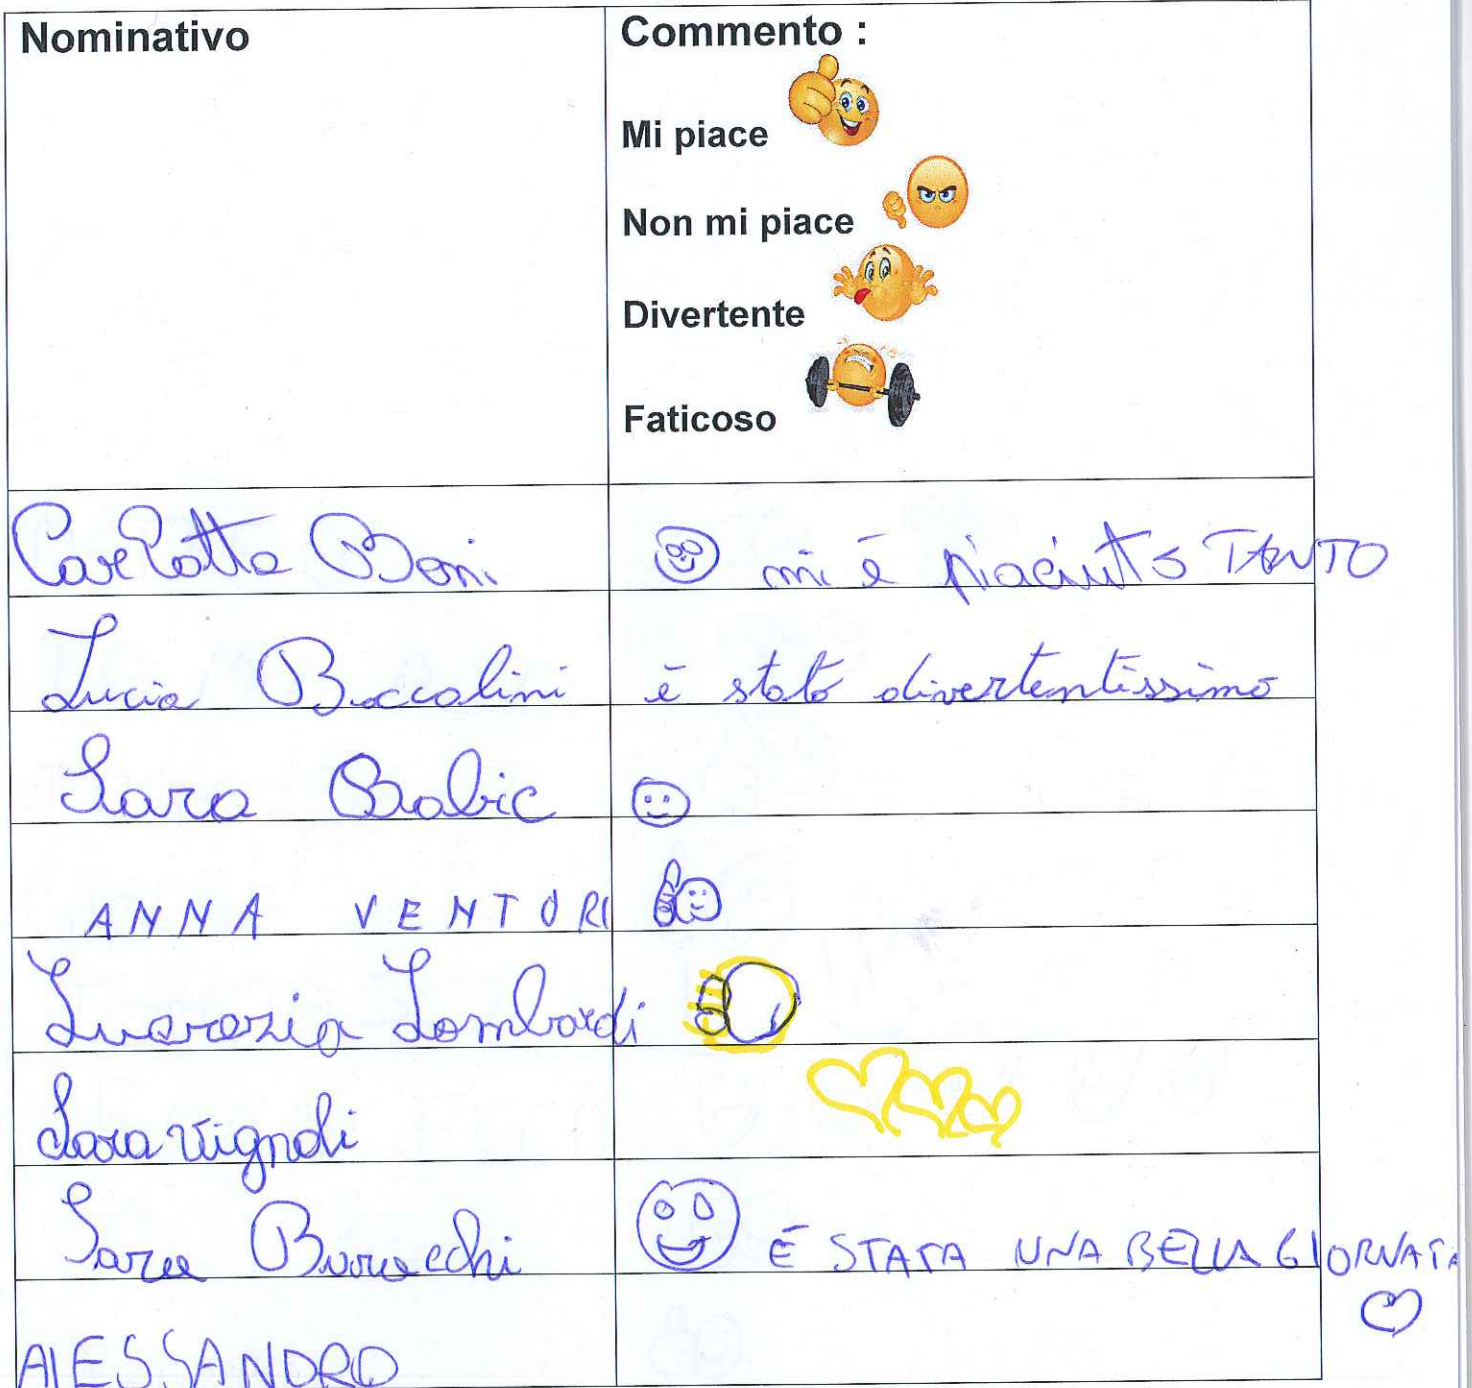 Nominativo
Commento :
Mi piace
Non mi piace
Divertente
Faticoso
Carlotta Boni
mi è piaciuto TANTO
Lucia Boccolini
è stato divertentissimo
Sara Babic
ANNA VENTURI
Lucrezia Lombardi
Sara Vignoli
Sara
È STATA UNA BELLA GIORNATA
ALESSANDRO